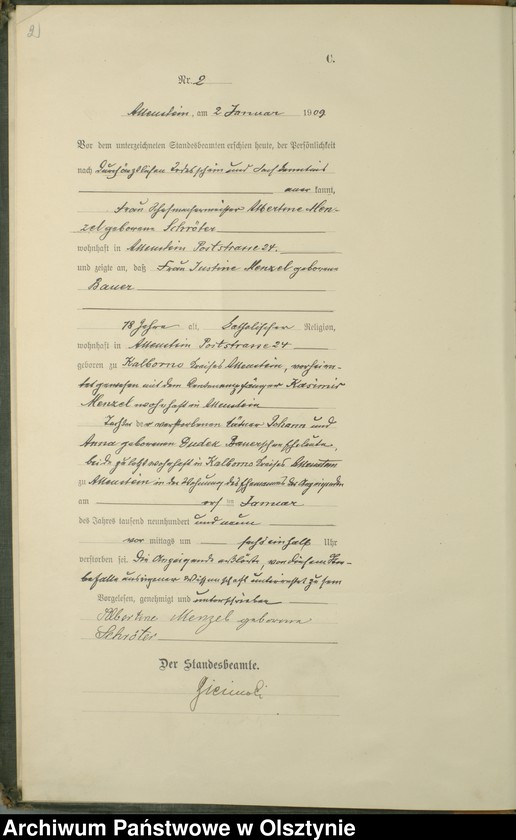 2)
C.
Nr. 2
Allenstein, am 2 Januar 1909
Vor dem unterzeichneten Standesbeamten erschien heute, der Persönlichkeit
nach durch ärztlichen Todesschein und Sachkenntnis
aner kannt,
Frau Schuhmachermeister Albertine Men-
zel geborene Schröter
wohnhaft in Allenstein Poststrasse 24.
und zeigte an, daß Frau Justine Menzel geborene
Bauer
78 Jahre alt, katholischer Religion,
wohnhaft in Allenstein Poststrasse 24
geboren zu Kalborno Kreises Allenstein, verheira-
tet gewesen mit dem Rentenempfänger Kasimir
Menzel wohnhaft in Allenstein
Tochter der verstorbenen Johann und
Anna geborenen Dudek Bauerschen Eheleute,
beide zuletzt wohnhaft in Kalborno Kreises Allenstein
zu Allenstein in der Wohnung des Ehemannes der Anzeigenden
am ersten Januar
des Jahres tausend neunhundert und neun
vor mittags um sechseinhalb Uhr
verstorben sei. Die Anzeigende erklärte, von diesem Ster-
befalle aus eigener Wissenschaft unterrichtet zu sein
Vorgelesen, genehmigt und unterschrieben
Albertine Menzel geborene
Schröter
Der Standesbeamte.
Archiwum Państwowe w Olsztynie